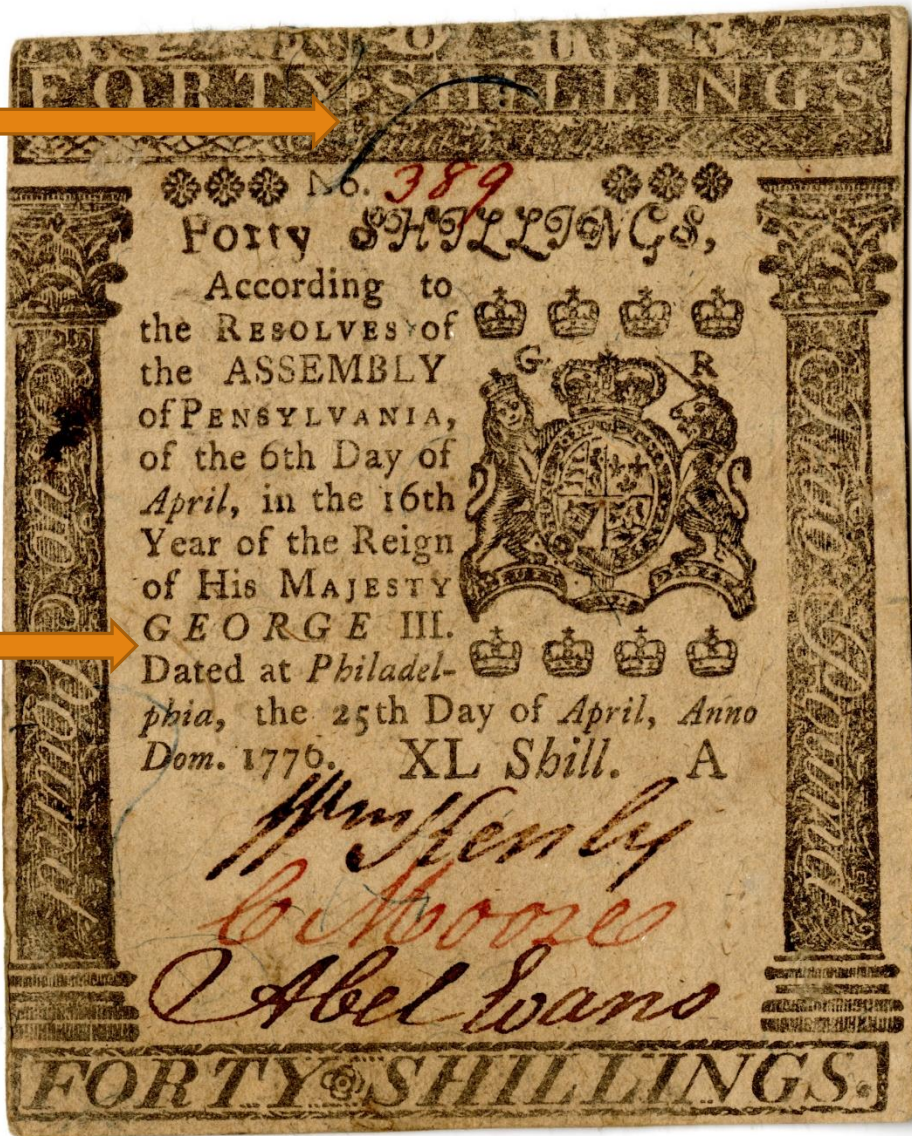 POUND
FORTY SHILLINGS
No. 389
Forty SHILLINGS,
According to
the RESOLVES of
the ASSEMBLY
of PENSYLVANIA,
of the 6th Day of
April, in the 16th
Year of the Reign
of His MAJESTY
GEORGE III.
Dated at Philadel-
phia, the 25th Day of April, Anno
Dom. 1776. XL Shill. A
G R
Two Pound
Wm Kenly
C Moore
Abel Evans
FORTY SHILLINGS.